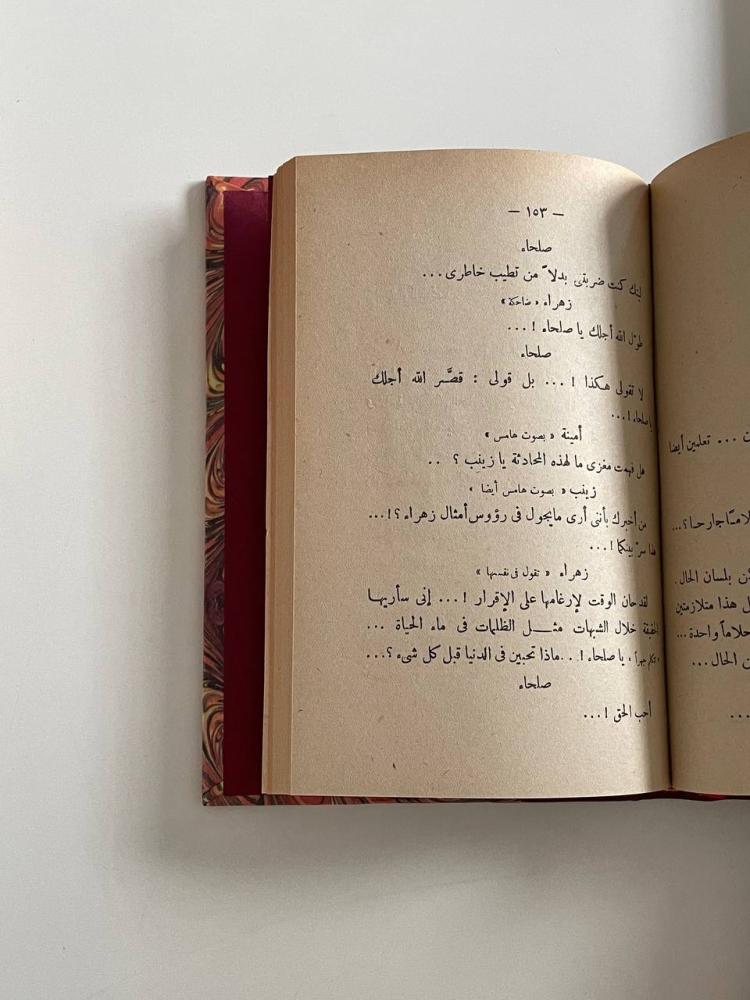 — ١٥٣ —
صلحاء
ليتك كنت ضربتنى بدلاً من تطيب خاطرى ...
زهراء « ضاحكة »
طوّل الله أجلك يا صلحاء ! ...
صلحاء
لا تقولى هكذا ! ... بل قولى : قصَّر الله أجلك
يا صلحاء ! ...
أمينة « بصوت هامس »
هل فهمت مغزى ما لهذه المحادثة يا زينب ؟ ..
زينب « بصوت هامس أيضا »
من أخبرك بأننى أرى مايجول فى رؤوس أمثال زهراء ؟! ...
هذا سرّ بينكما ! ...
زهراء « تقول فى نفسها »
لقد حان الوقت لإرغامها على الإقرار ! ... إنى سأريها
الحقيقة خلال الشبهات مثل الظلمات فى ماء الحياة ...
« تتكلم جهراً » يا صلحاء ! ... ماذا تحبين فى الدنيا قبل كل شىء ؟ ...
صلحاء
أحب الحق ! ...
... تعلمين أيضا
جارحا ؟ ...
بلسان الحال .
هذا متلازمتين
واحدة ...
الحال ...
...